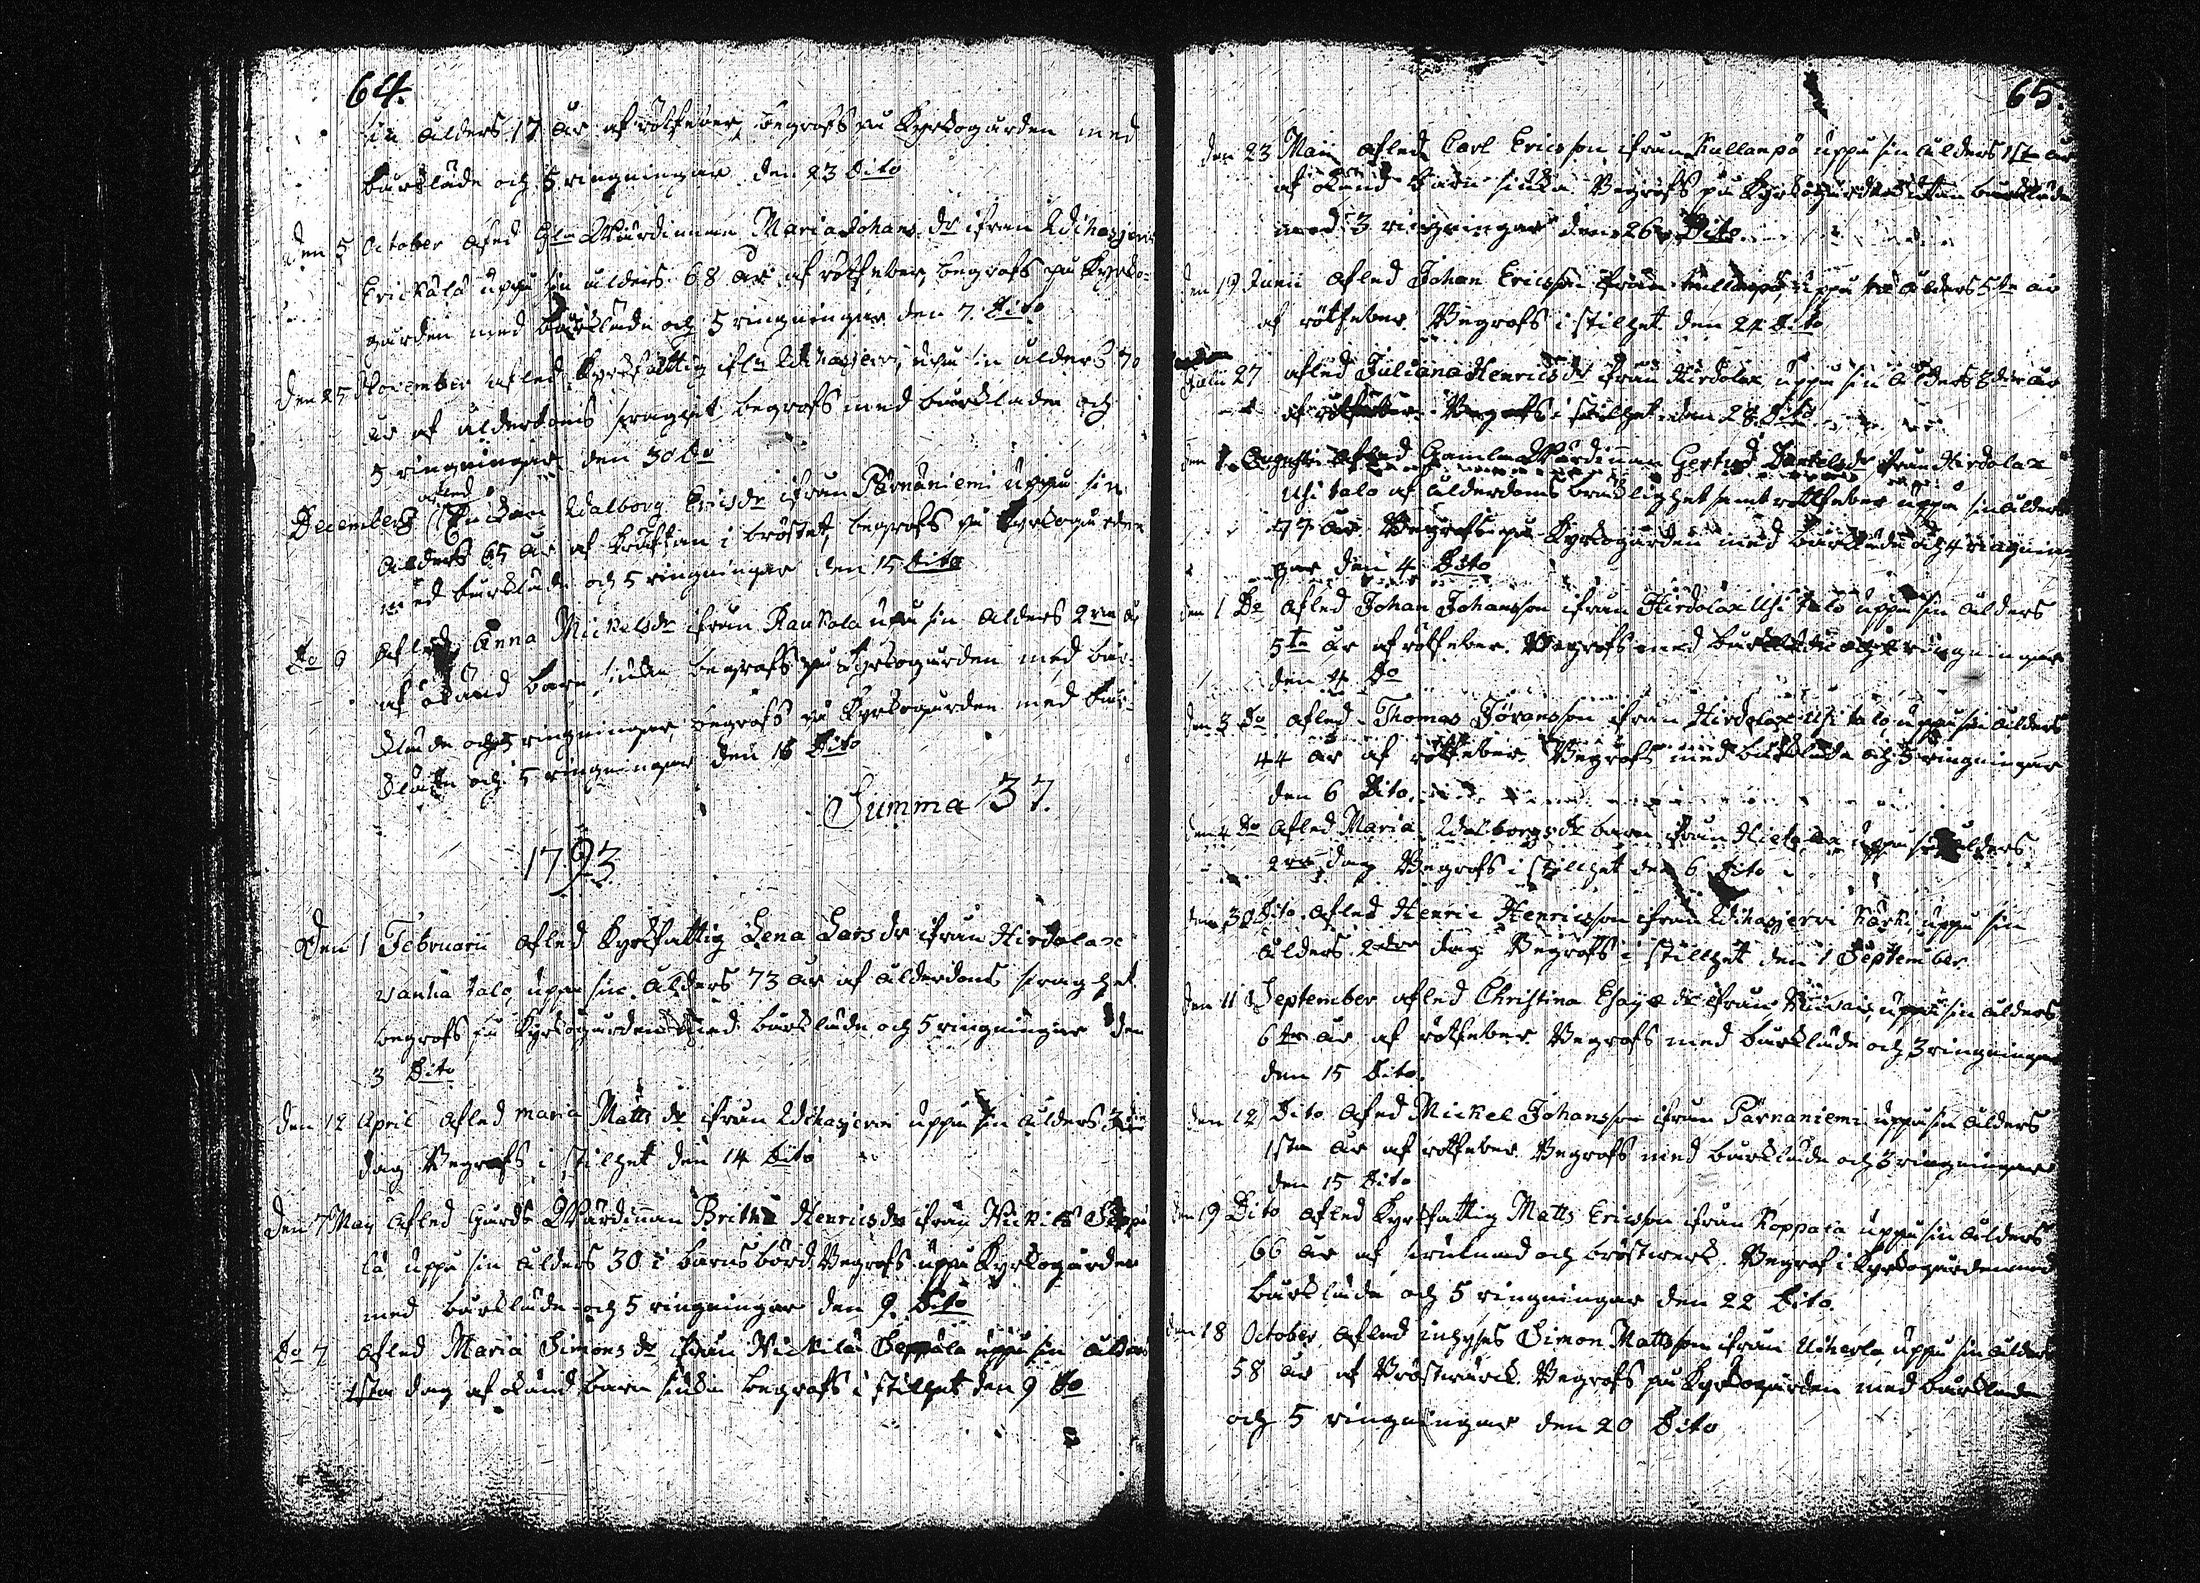 64.
sin ålders 17 år af rötfeber, begrofs på Kyrkogården med
bårkläde och 5 ringningar den 23 Dito
den 5 October afled Gla Wärdinnan Maria Johans dr ifrån Wihasjerfvi
Erickälä uppå sin ålders 68 år af rötfeber, begrofs på Kyrko-
gården med bårkläde och 5 ringningar den 7 Dito
den 25 November afled Kyrkfattig ifrn Wihasjervi, uppå sin ålders 70
år af ålderdoms svaghet begrofs med bårkläde och
5 ringningar den 30 Do
December afled Enkan Walborg Ericsdr ifrån Pärnäniemi uppå sin
ålders 65 år af kräftan i bröstet, begrofs på Kyrkogården
med bårkläde och 5 ringningar den 15 Dito
Do 9 Afled Anna Mickelsdr ifrån Raukala uppå sin ålders 2dra år
af okänd barn siuka begrofs på Kyrkogården med bår-
kläde och 5 ringningar begrofs på Kyrkogården med bår-
kläde och 5 ringningar den 16 Dito
Summa 37.
1793
Den 1 Februarii afled Kyrkfattig Lena Lars dr ifrån Hirdolax
vanha talo, uppå sin ålders 73 år af ålderdoms svaghet
begrofs på Kyrkogården med bårkläde och 5 ringningar den
3 Dito
den 12 April afled Maria Matts dr ifrån Wihasjervi uppå sin ålders 3die
dag Begrofs i stilhet den 14 Dito
Den 7 Maij Afled Gårds Wärdinnan Britha Henricsdr ifrån Nickilä Seppä
lä uppå sin ålders 30 i barnsbörd Begrofs uppå Kyrkogården
med bårkläde och 5 ringningar den 9 Dito
Do 7 Afled Maria Simons dr ifrån Nickilä Seppälä uppå sin ålders
1sta dag af okänd barn siuka begrofs i stilhet den 9 Do
65.
den 23 Maij afled Carl Ericsson ifrån Kullanpä uppå sin ålders 1sta år
af okänd barn siuka Begrofs på Kyrkogården utan bårkläde
med 3 ringningar den 26 Dito
den 19 Junii afled Johan Ericsson ifrån Kullanpä, uppå sin ålders 5te år
af rötfeber. Begrofs i stilhet den 24 Dito
Julii 27 afled Juliana Henricsdr ifrån Hirdolax uppå sin ålders 3die år
af rötfeber. Begrofs i stilhet den 28 Dito
den 1 Augusti afled Gamla Wärdinnan Gertrud Danielsdr ifrån Hirdolax
Usi talo af ålderdoms bräcklighet samt rötfeber uppå sin ålders
77 år Begrofs på Kyrkogården med bårkläde och 4 ringnin
gar den 4 Dito
den 1 Do Afled Johan Johansson ifrån Hirdolax Usi talo uppå sin ålders
5te år af rötfeber. Begrofs med bårkläde och ringningar
den 4 Do
den 3 Do afled Thomas Jöransson ifrån Hirdolax Usi talo uppå sin ålders
44 år af rötfeber. Begrofs med bårkläde och 5 ringningar
den 6 Dito
den 4 Do afled Maria Walborgsdr barn ifrån uppå sin ålders
2dra dag Begrofs i stillhet den 6 Dito
den 30 Dito afled Henric Henricsson ifrån Wihasjervi uppå sin
ålders 2dra dag Begrofs i stillhet den 1 September
den 11 September afled Christina Esaiæ dr ifrån uppå sin ålders
6te år af rötfeber Begrofs med bårkläde och 3 ringningar
den 15 Dito.
den 12 Dito Afled Mickel Johansson ifrån Pärnäniemi uppå sin ålders
1sta år af rotfeber Begrofs med bårkläde och 3 ringningar
den 15 Dito
den 19 Dito afled Kyrkfattig Matts Ericsson ifrån Koppala uppå sin ålders
66 år af och bröstwerk. Begrof i Kyrkogården med
bårkläde och 5 ringningar den 22 Dito.
den 18 October afled inhyses Simon Mattsson ifrån Uiherla, uppå sin ålders
58 år af Bröstwärck Begrofs på Kyrkogården med bårkläde
och 5 ringningar den 20 Dito